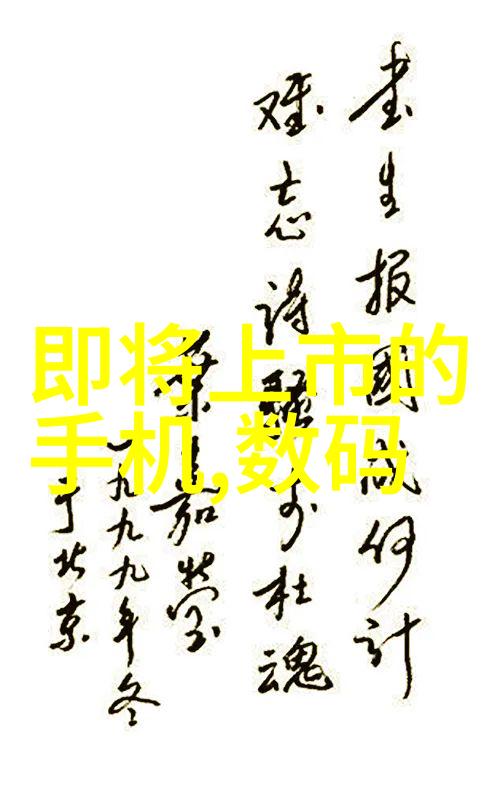 書生报國成何计
难忘诗骚李杜魂
葉嘉莹
一九九九年冬
于北京
即将上市的
手机,数码